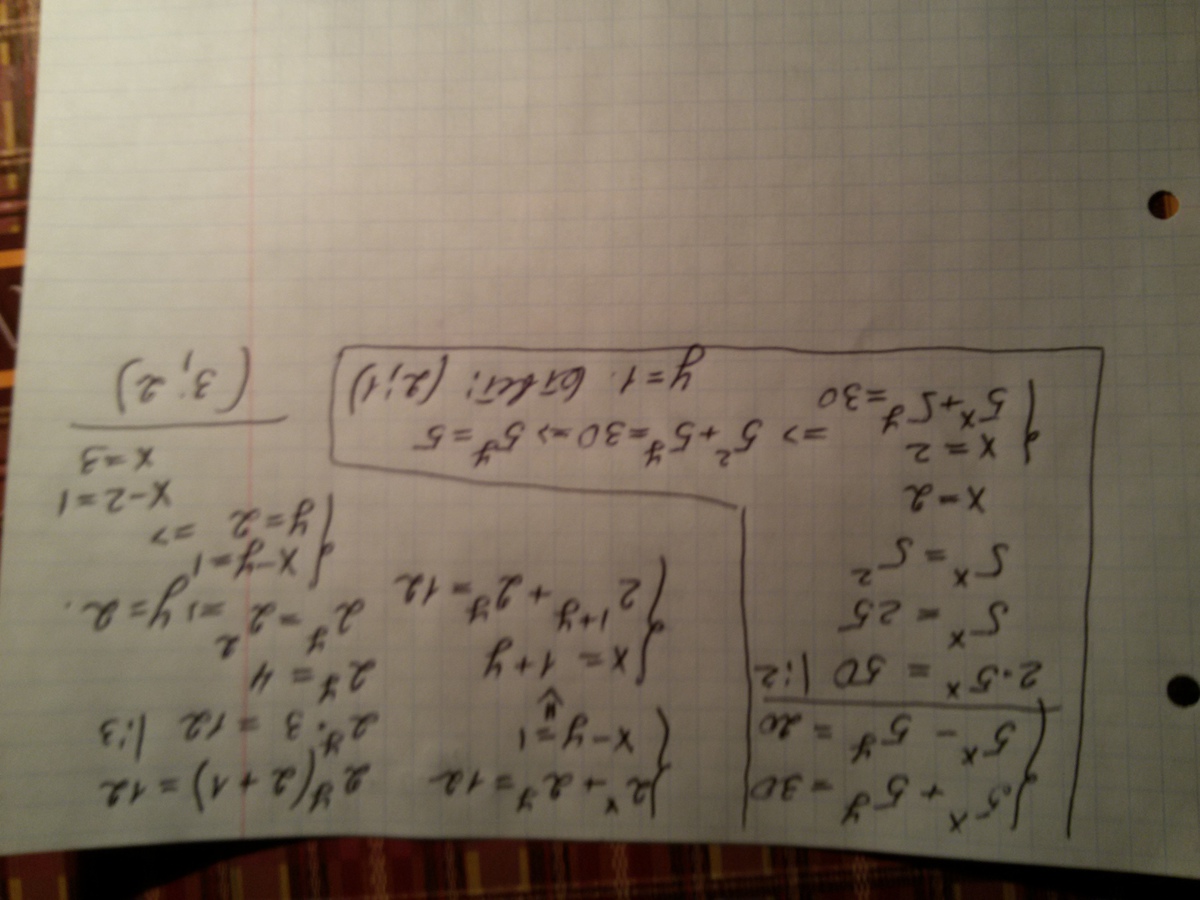 {5ˣ + 5ʸ = 30
5ˣ − 5ʸ = 20
2·5ˣ = 50 |:2
5ˣ = 25
5ˣ = 5²
x − 2
{x = 2
5ˣ + 5ʸ = 30
=> 5² + 5ʸ = 30 => 5ʸ = 5
y = 1. Ответ: (2;1)
{2ˣ + 2ʸ = 12
x − y = 1
⇓
{x = 1 + y
2¹⁺ʸ + 2ʸ = 12
2ʸ(2+1) = 12
2ʸ·3 = 12 |:3
2ʸ = 4
2ʸ = 2² => y = 2.
{x − y = 1
y = 2 =>
x − 2 = 1
x = 3
(3; 2)